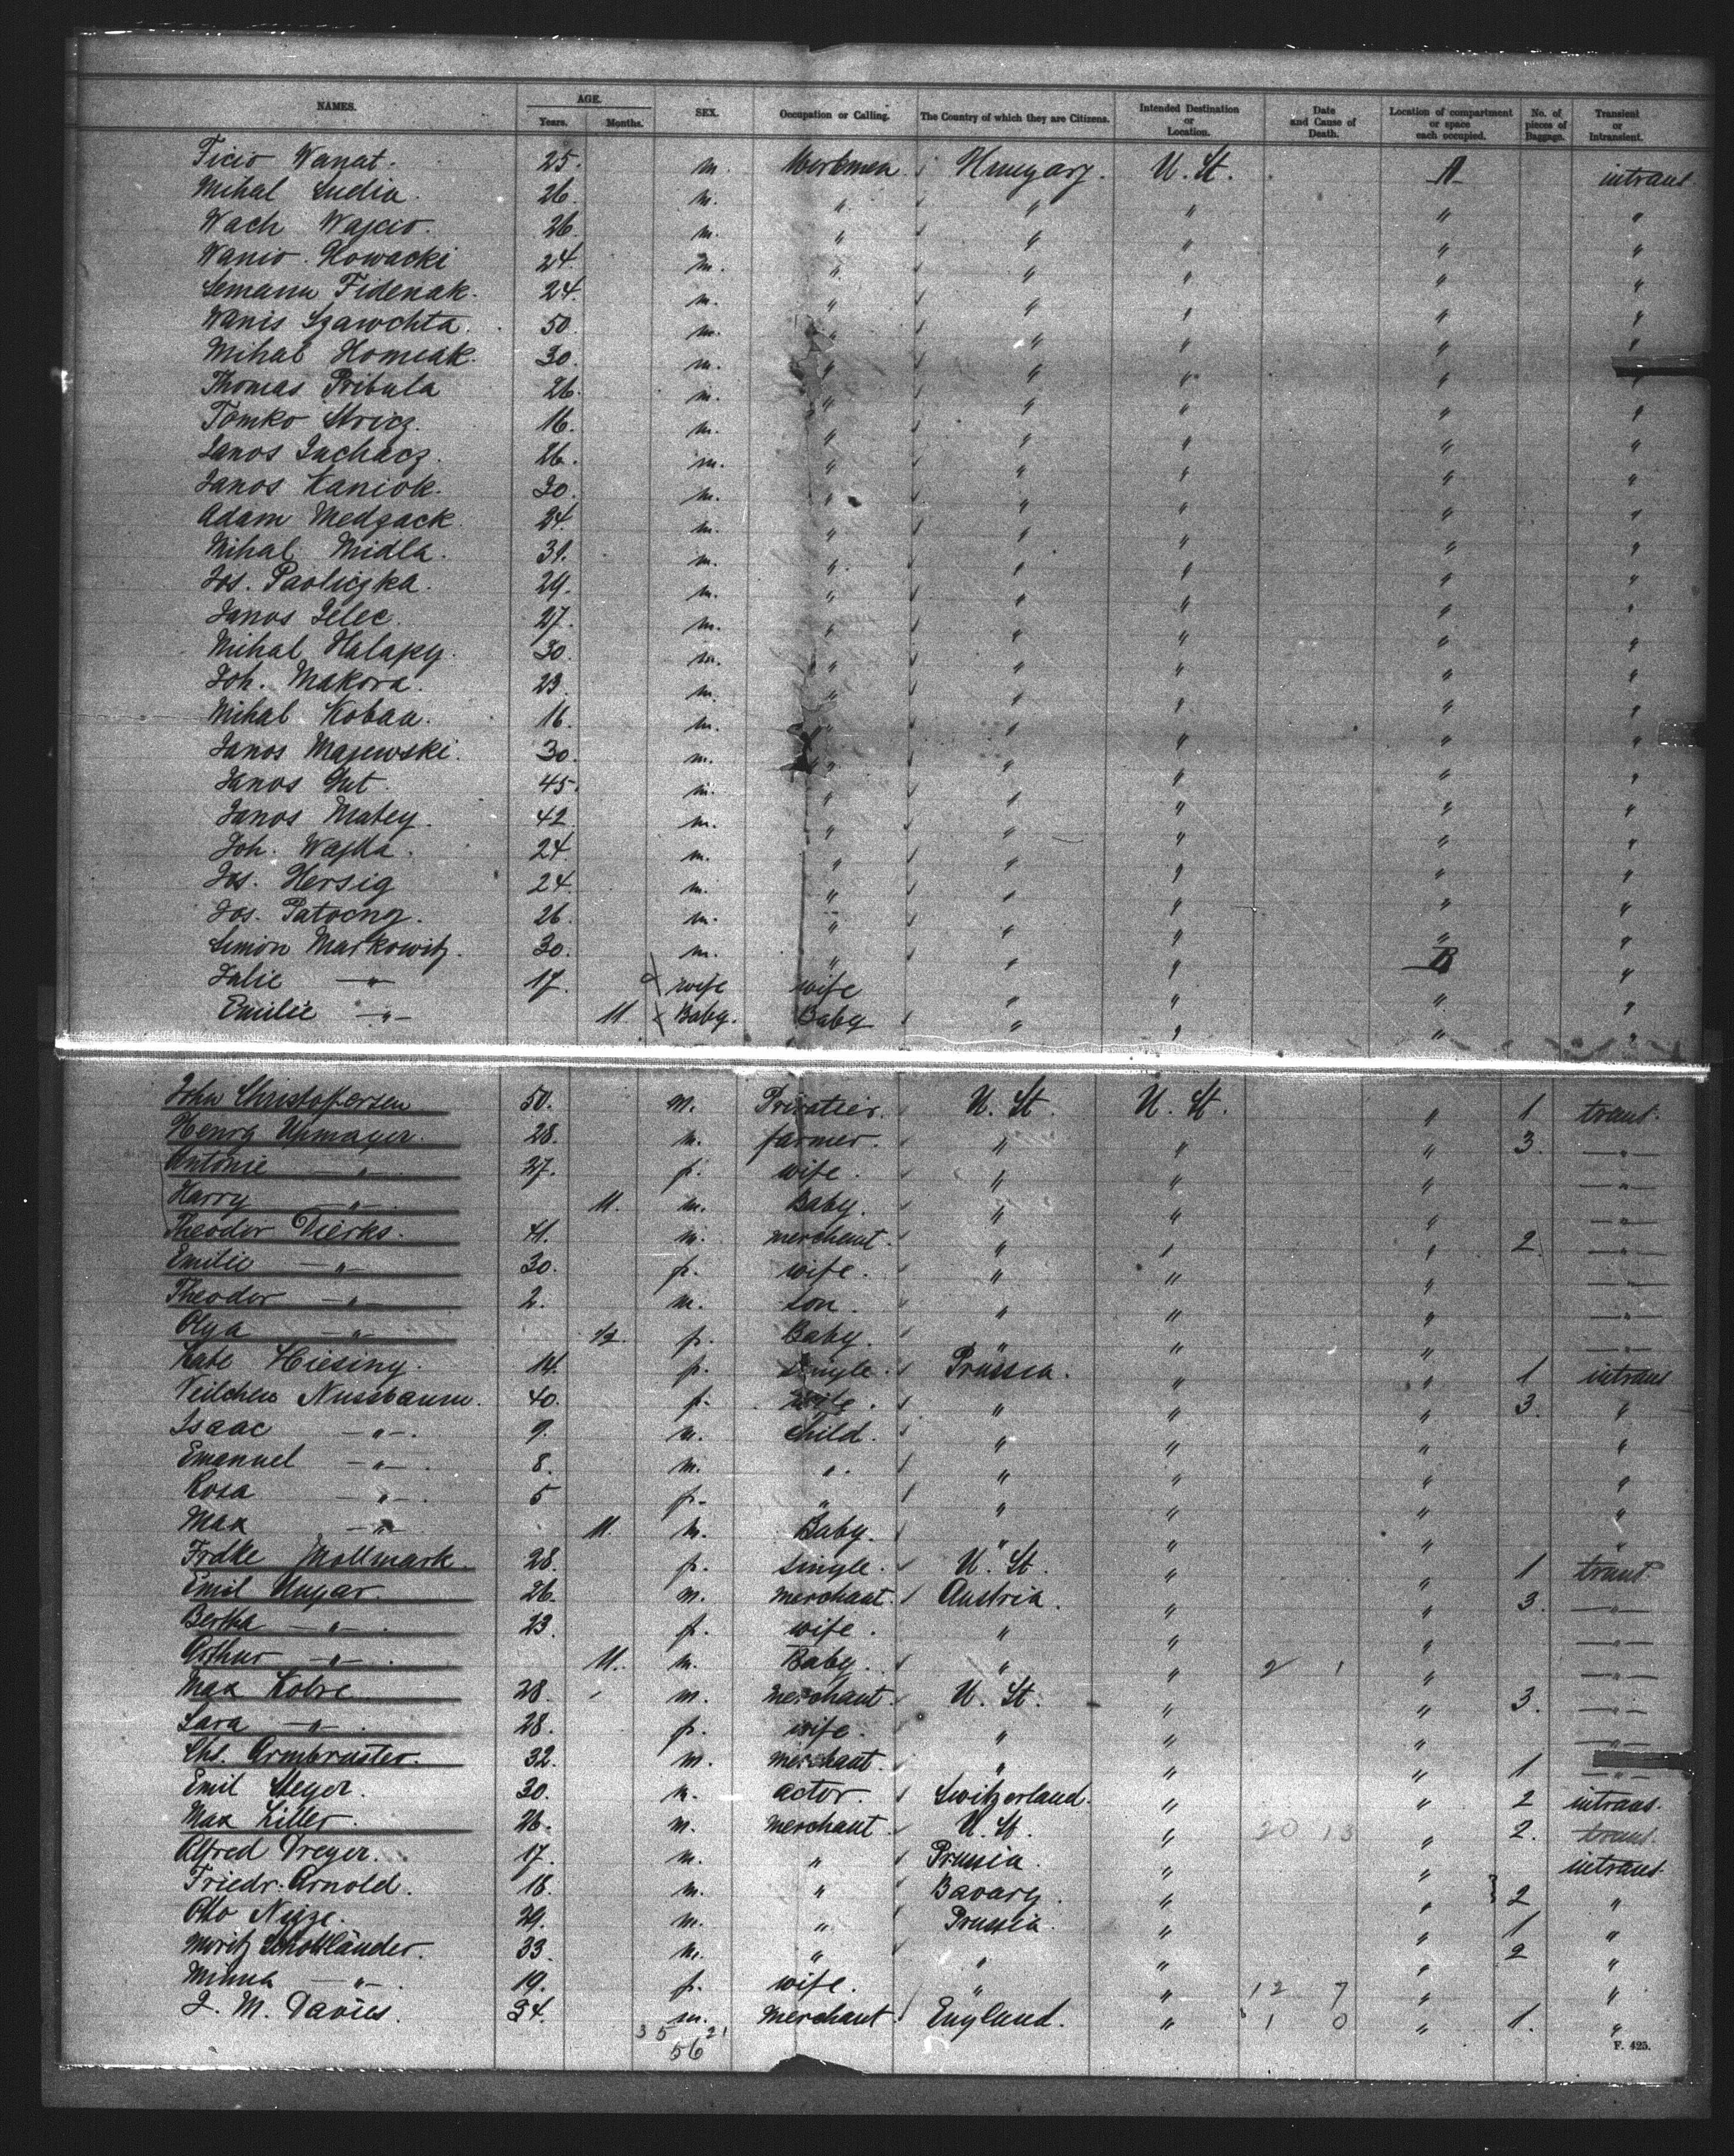 NAMES. AGE. Years. Months. SEX. Occupation or Calling. The Country of which they are Citizens. Intended Destination or Location. Date and Cause of Death. Location of compartment or space each occupied. No. of pieces of Baggage. Transient or Intransient.
Ficio Wanat. 25. m. Workmen Hungary. U. St. A intrans
Mihal Sudia. 26. m. " " " " "
Wach Wajcio. 26. m. " " " " "
Wanio Nowacki 24. m. " " " " "
Semann Fidenak. 24. m. " " " " "
Wanis Szawchta. 50. m. " " " " "
Mihal Homeak. 30. m. " " " " "
Thomas Pribula 26. m. " " " " "
Tomko Stricz. 16. m. " " " " "
Janos Suchacz. 26. m. " " " " "
Janos Kaniok. 30. m. " " " " "
Adam Medgack 24. m. " " " " "
Mihal Midla. 31. m. " " " " "
Jos. Paoliczka. 29. m. " " " " "
Janos Zelec. 27. m. " " " " "
Mihal Halapy. 30. m. " " " " "
Joh. Makora. 23. m. " " " " "
Mihal Kobaa. 16. m. " " " " "
Janos Majewski. 30. m. " " " " "
Janos Gut. 45. m. " " " " "
Janos Matey. 42. m. " " " " "
Joh. Wajda. 24. m. " " " " "
Jos. Hersig 24. m. " " " " "
Jos. 26. m. " " " " "
Simon Markowitz. 30. m. " " " B "
Julie " 17. wife wife " " " "
Emilie " 11 Baby. Baby " " " "
John Christofersen 50. m. Privatier. U. St. U. St. " 1 trans.
Henry Upmayer. 28. m. farmer. " " " 3. "
Antonie " 27. f. wife. " " " "
Harry " 11. m. Baby. " " " "
Theodor Dierks. 41. m. merchant. " " " 2. "
Emilie " 30. f. wife. " " " "
Theodor " 2. m. son. " " " "
Olga " f. Baby. " " " "
Kate Hiesing. 14. f. single. Prussia. " " 1 intrans
Veilchen Nussbaum. 40. f. wife. " " " 3. "
Isaac " 9. m. child. " " " "
Emanuel " 8. m. " " " " "
Rosa " 5 f. " " " " "
Max " 11. m. Baby. " " " "
Frdke Mollmark 28. f. single. U. St. " " 1 trans
Emil Ungar. 26. m. merchant. Austria. " " 3. "
Bertha " 23. f. wife. " " " "
Arthur " 11. m. Baby. " " 2 1 " "
Max Kobre 28. m. merchant. U. St. " " 3. "
Sara " 28. f. wife. " " " "
Chs. Armbruster. 32. m. merchant. " " " 1 "
Emil Steger. 30. m. actor. Switzerland. " " 2 intrans.
Max Liller. 26. m. merchant U. St. " 20 13 " 2. trans.
Alfred Dreyer. 17. m. " Prussia. " " intrans.
Friedr. Arnold. 18. m. " Bavary. " " 2 "
Otto 29. m. " Prussia. " " 1 "
Moritz Schottländer. 33. m. " " " " 2 "
Minna " 19. f. wife. " " 12 7 " "
J. M. Davies. 34. m. merchant England. " 1 0 " 1. "
35 21
56
F. 425.